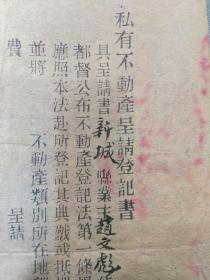 私有不動產呈請登記書
具呈請書新城縣業主趙文彪
都督公布不動產登記法第一條
廳照本法赴所登記其典
並將　不動產類別所在地
費　呈請